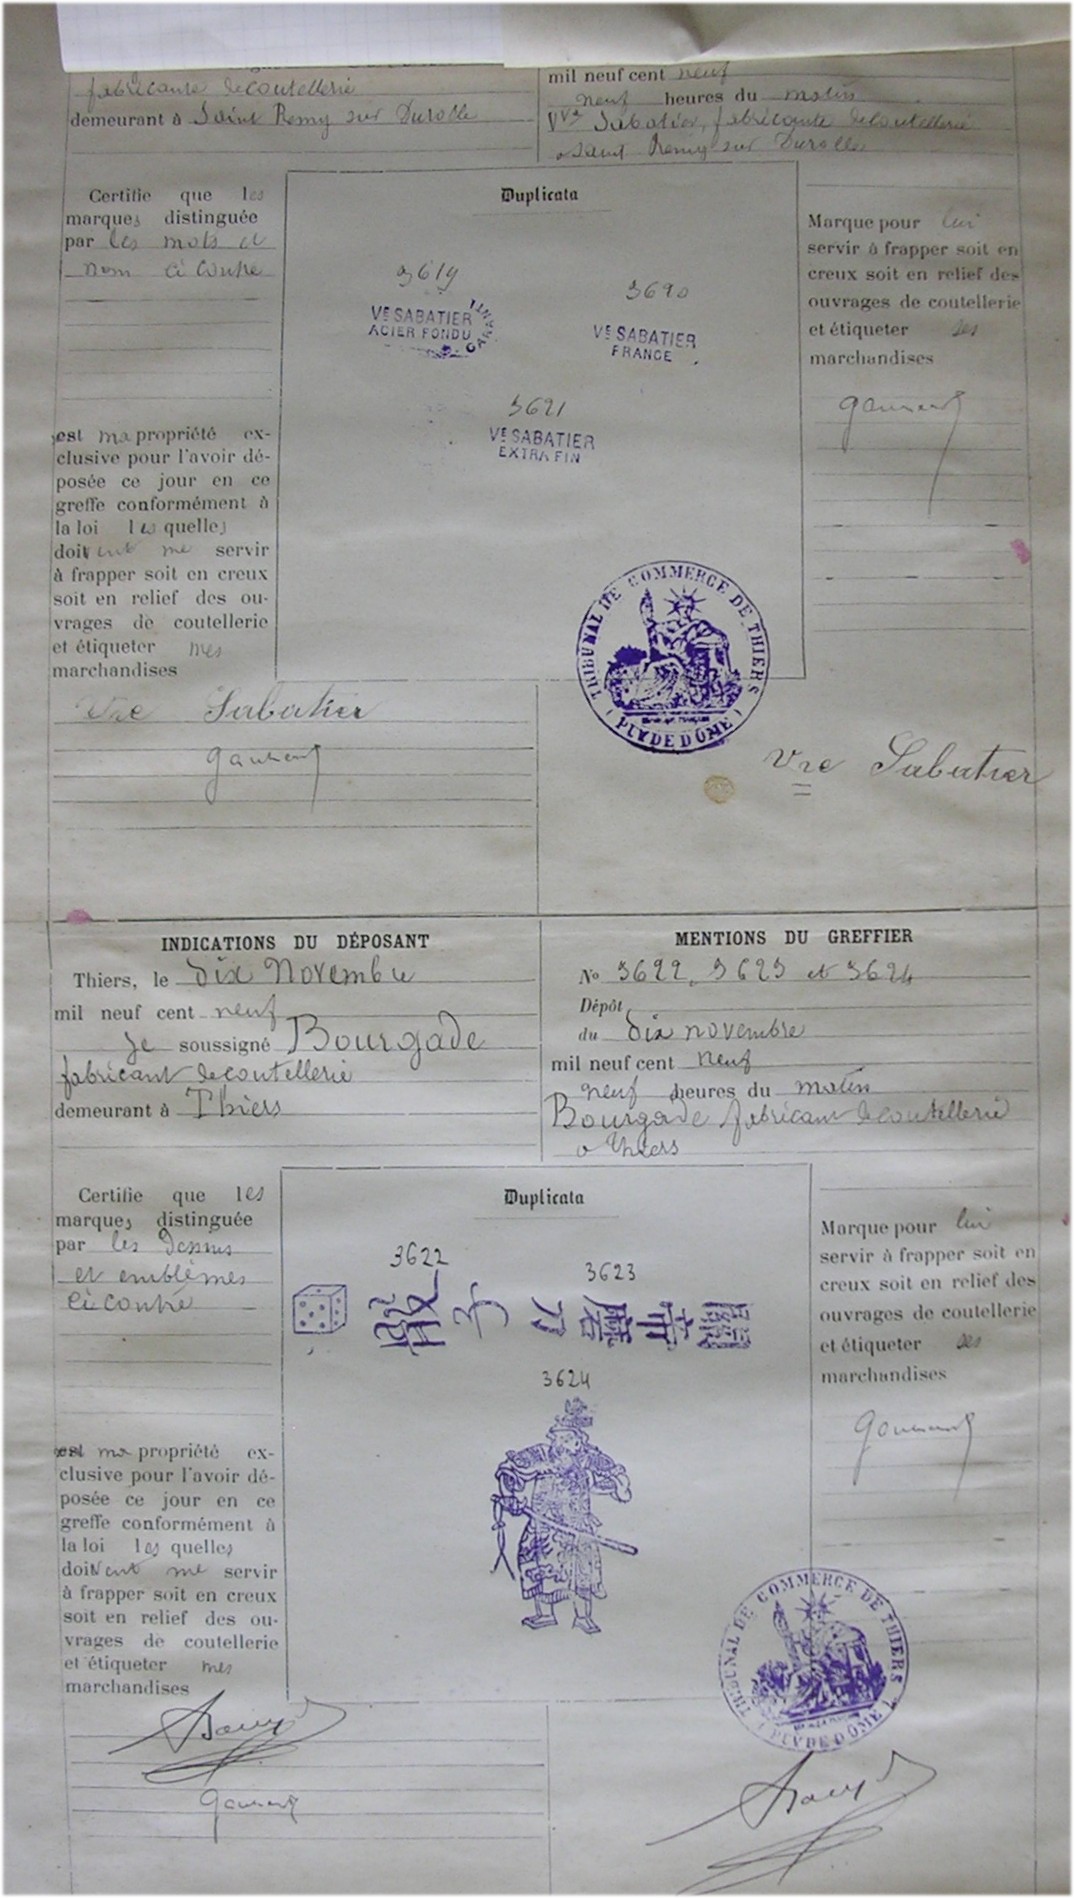 fabricante de coutellerie
demeurant à Saint Remy sur Durolle
mil neuf cent neuf
neuf heures du matin
Vve Sabatier, fabricante de coutellerie
a Saint Remy sur Durolle
Certifie que les
marques distinguée
par les mots et
nom ci contre
est ma propriété ex-
clusive pour l'avoir dé-
posée ce jour en ce
greffe conformément à
la loi les quelles
doivent me servir
à frapper soit en creux
soit en relief des ou-
vrages de coutellerie
et étiqueter mes
marchandises
Vve Sabatier
Duplicata
3619
VE SABATIER
ACIER FONDU
GARANTI
3620
VE SABATIER
FRANCE
3621
VE SABATIER
EXTRA FIN
TRIBUNAL DE COMMERCE DE THIERS
(PUY DE DOME)
Marque pour lui
servir à frapper soit en
creux soit en relief des
ouvrages de coutellerie
et étiqueter ses
marchandises
Vve Sabatier
INDICATIONS DU DÉPOSANT
Thiers, le dix Novembre
mil neuf cent neuf
Je soussigné Bourgade
fabricant de coutellerie
demeurant à Thiers
MENTIONS DU GREFFIER
No 3622, 3623 et 3624
Dépôt
du dix novembre
mil neuf cent neuf
neuf heures du matin
Bourgade fabricant de coutellerie
a Thiers
Certifie que les
marques distinguée
par les dessins
et emblèmes
ci contre
est ma propriété ex-
clusive pour l'avoir dé-
posée ce jour en ce
greffe conformément à
la loi les quelles
doivent me servir
à frapper soit en creux
soit en relief des ou-
vrages de coutellerie
et étiqueter mes
marchandises
Duplicata
3622
3623
子刀
3624
TRIBUNAL DE COMMERCE DE THIERS
(PUY DE DOME)
Marque pour lui
servir à frapper soit en
creux soit en relief des
ouvrages de coutellerie
et étiqueter ses
marchandises